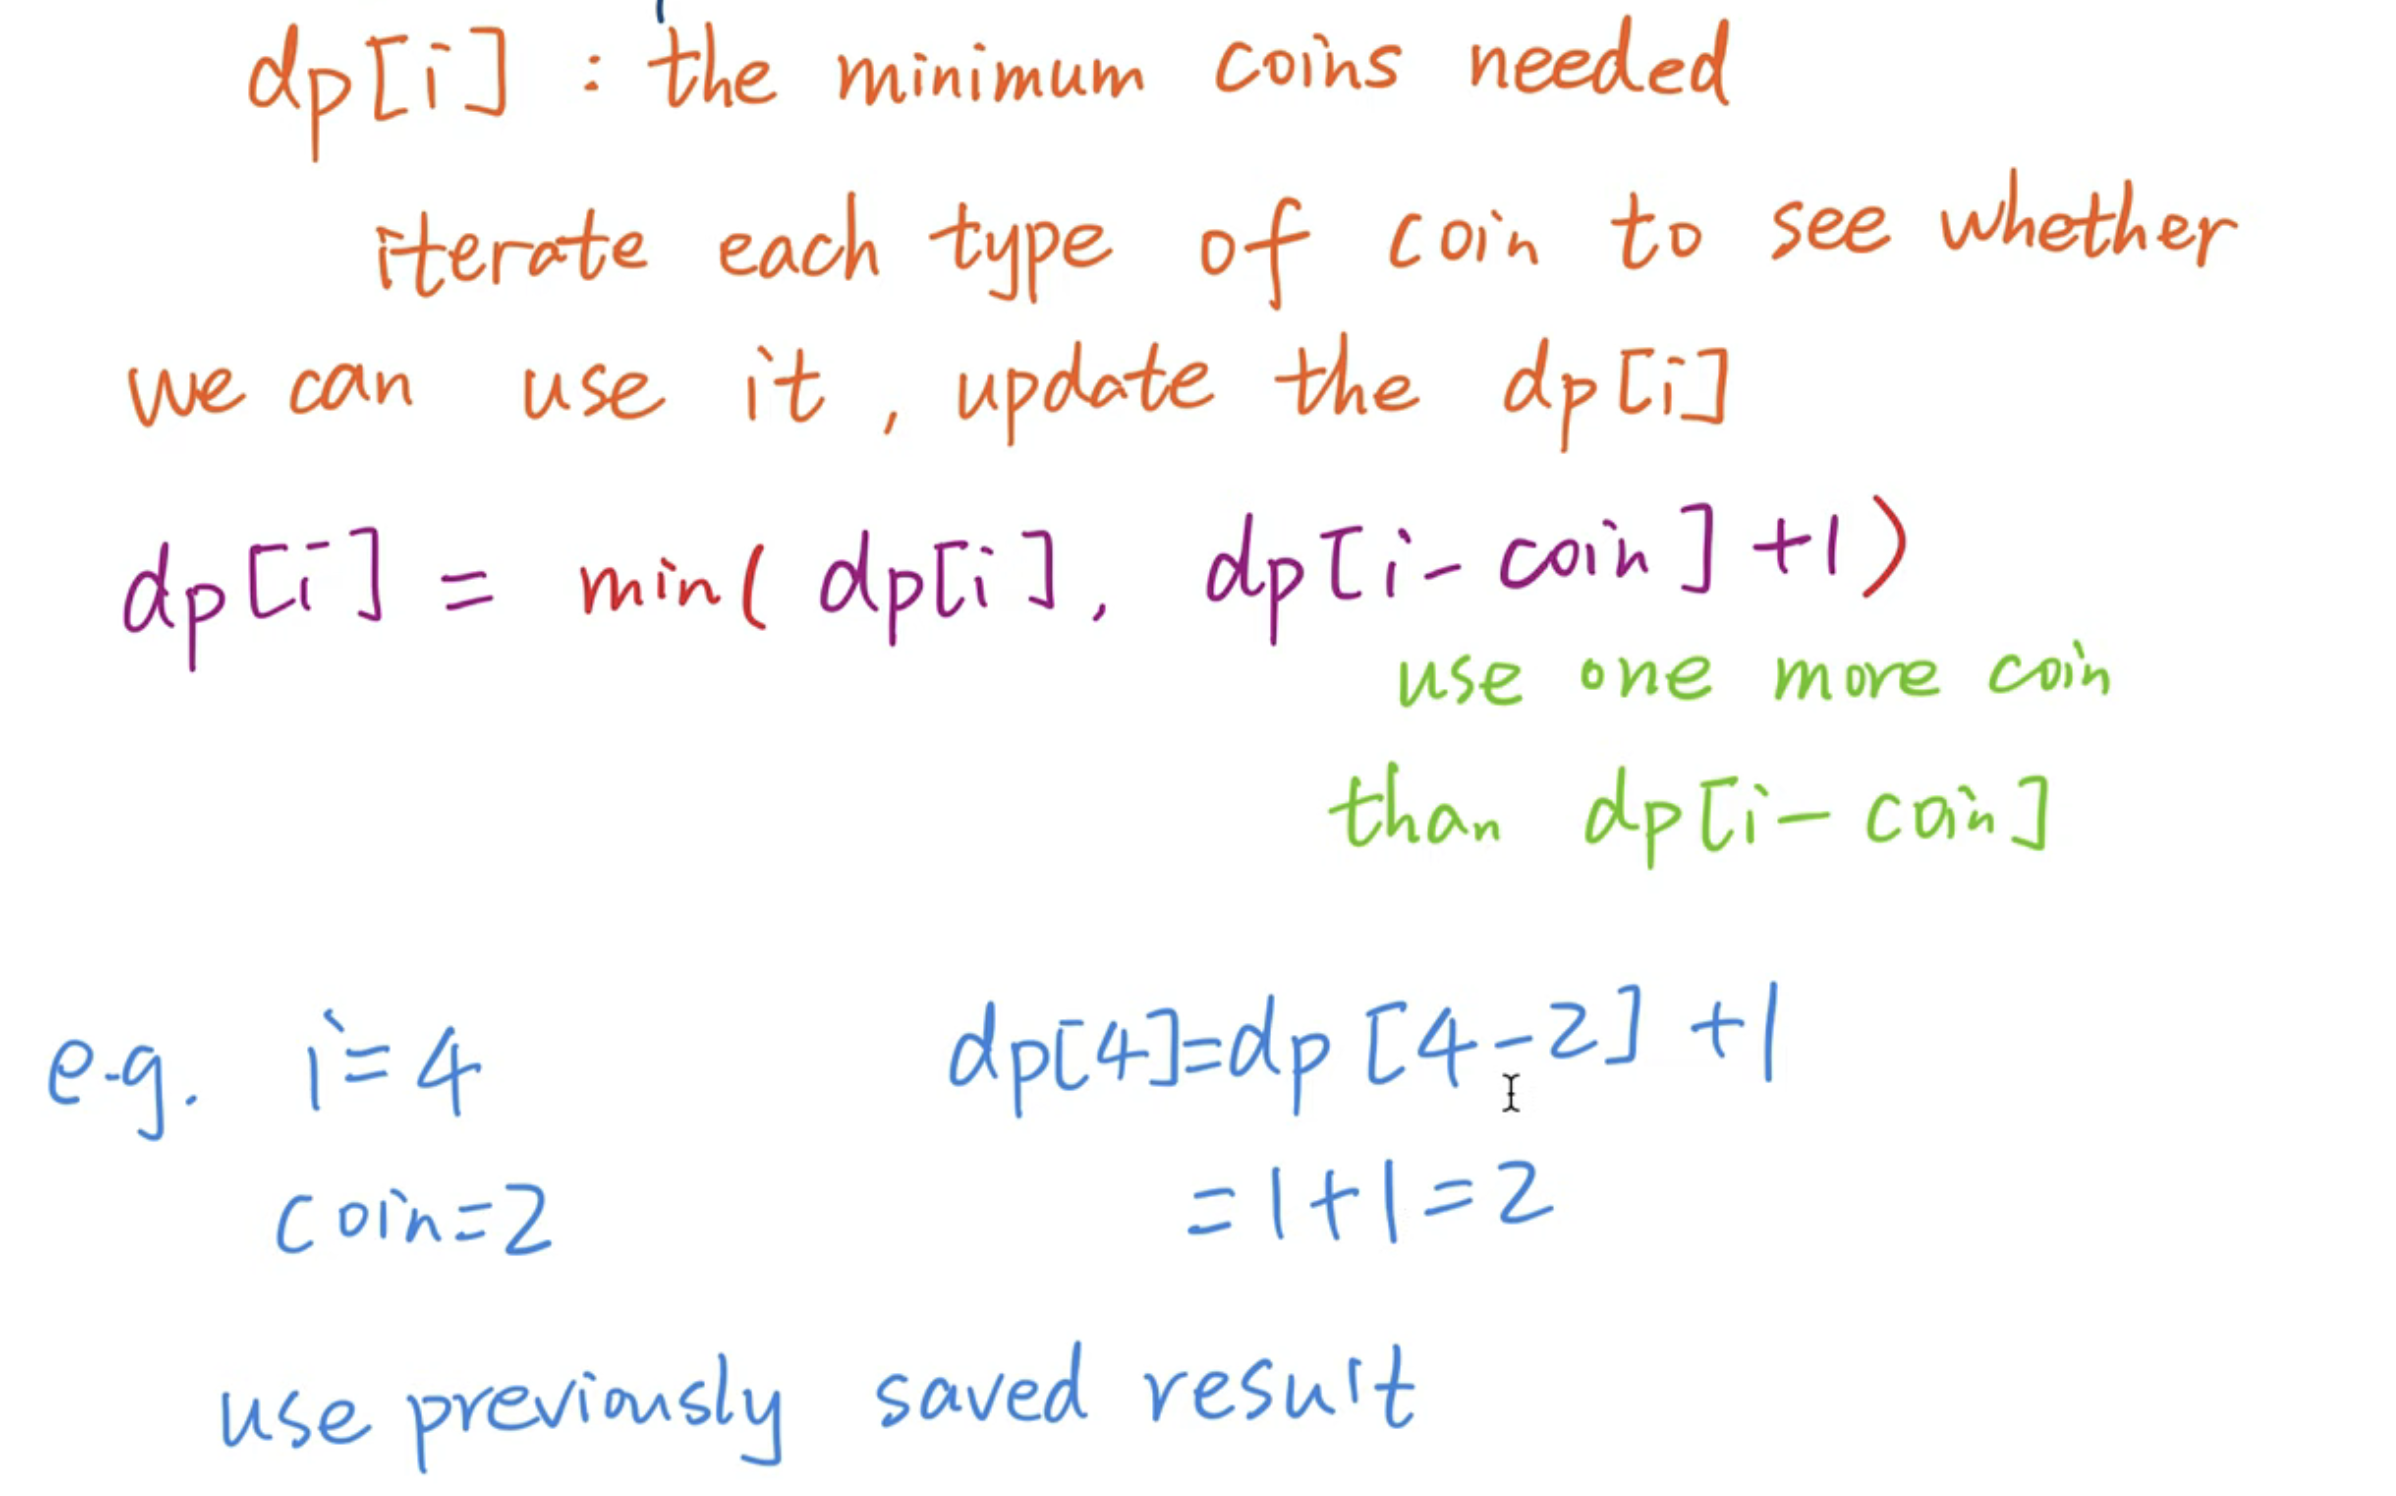 dp[i] : the minimum coins needed
iterate each type of coin to see whether
we can use it, update the dp[i]
dp[i] = min( dp[i], dp[i-coin]+1)
use one more coin
than dp[i-coin]
e.g. i=4 dp[4]=dp[4-2]+1
coin=2 =1+1=2
use previously saved result